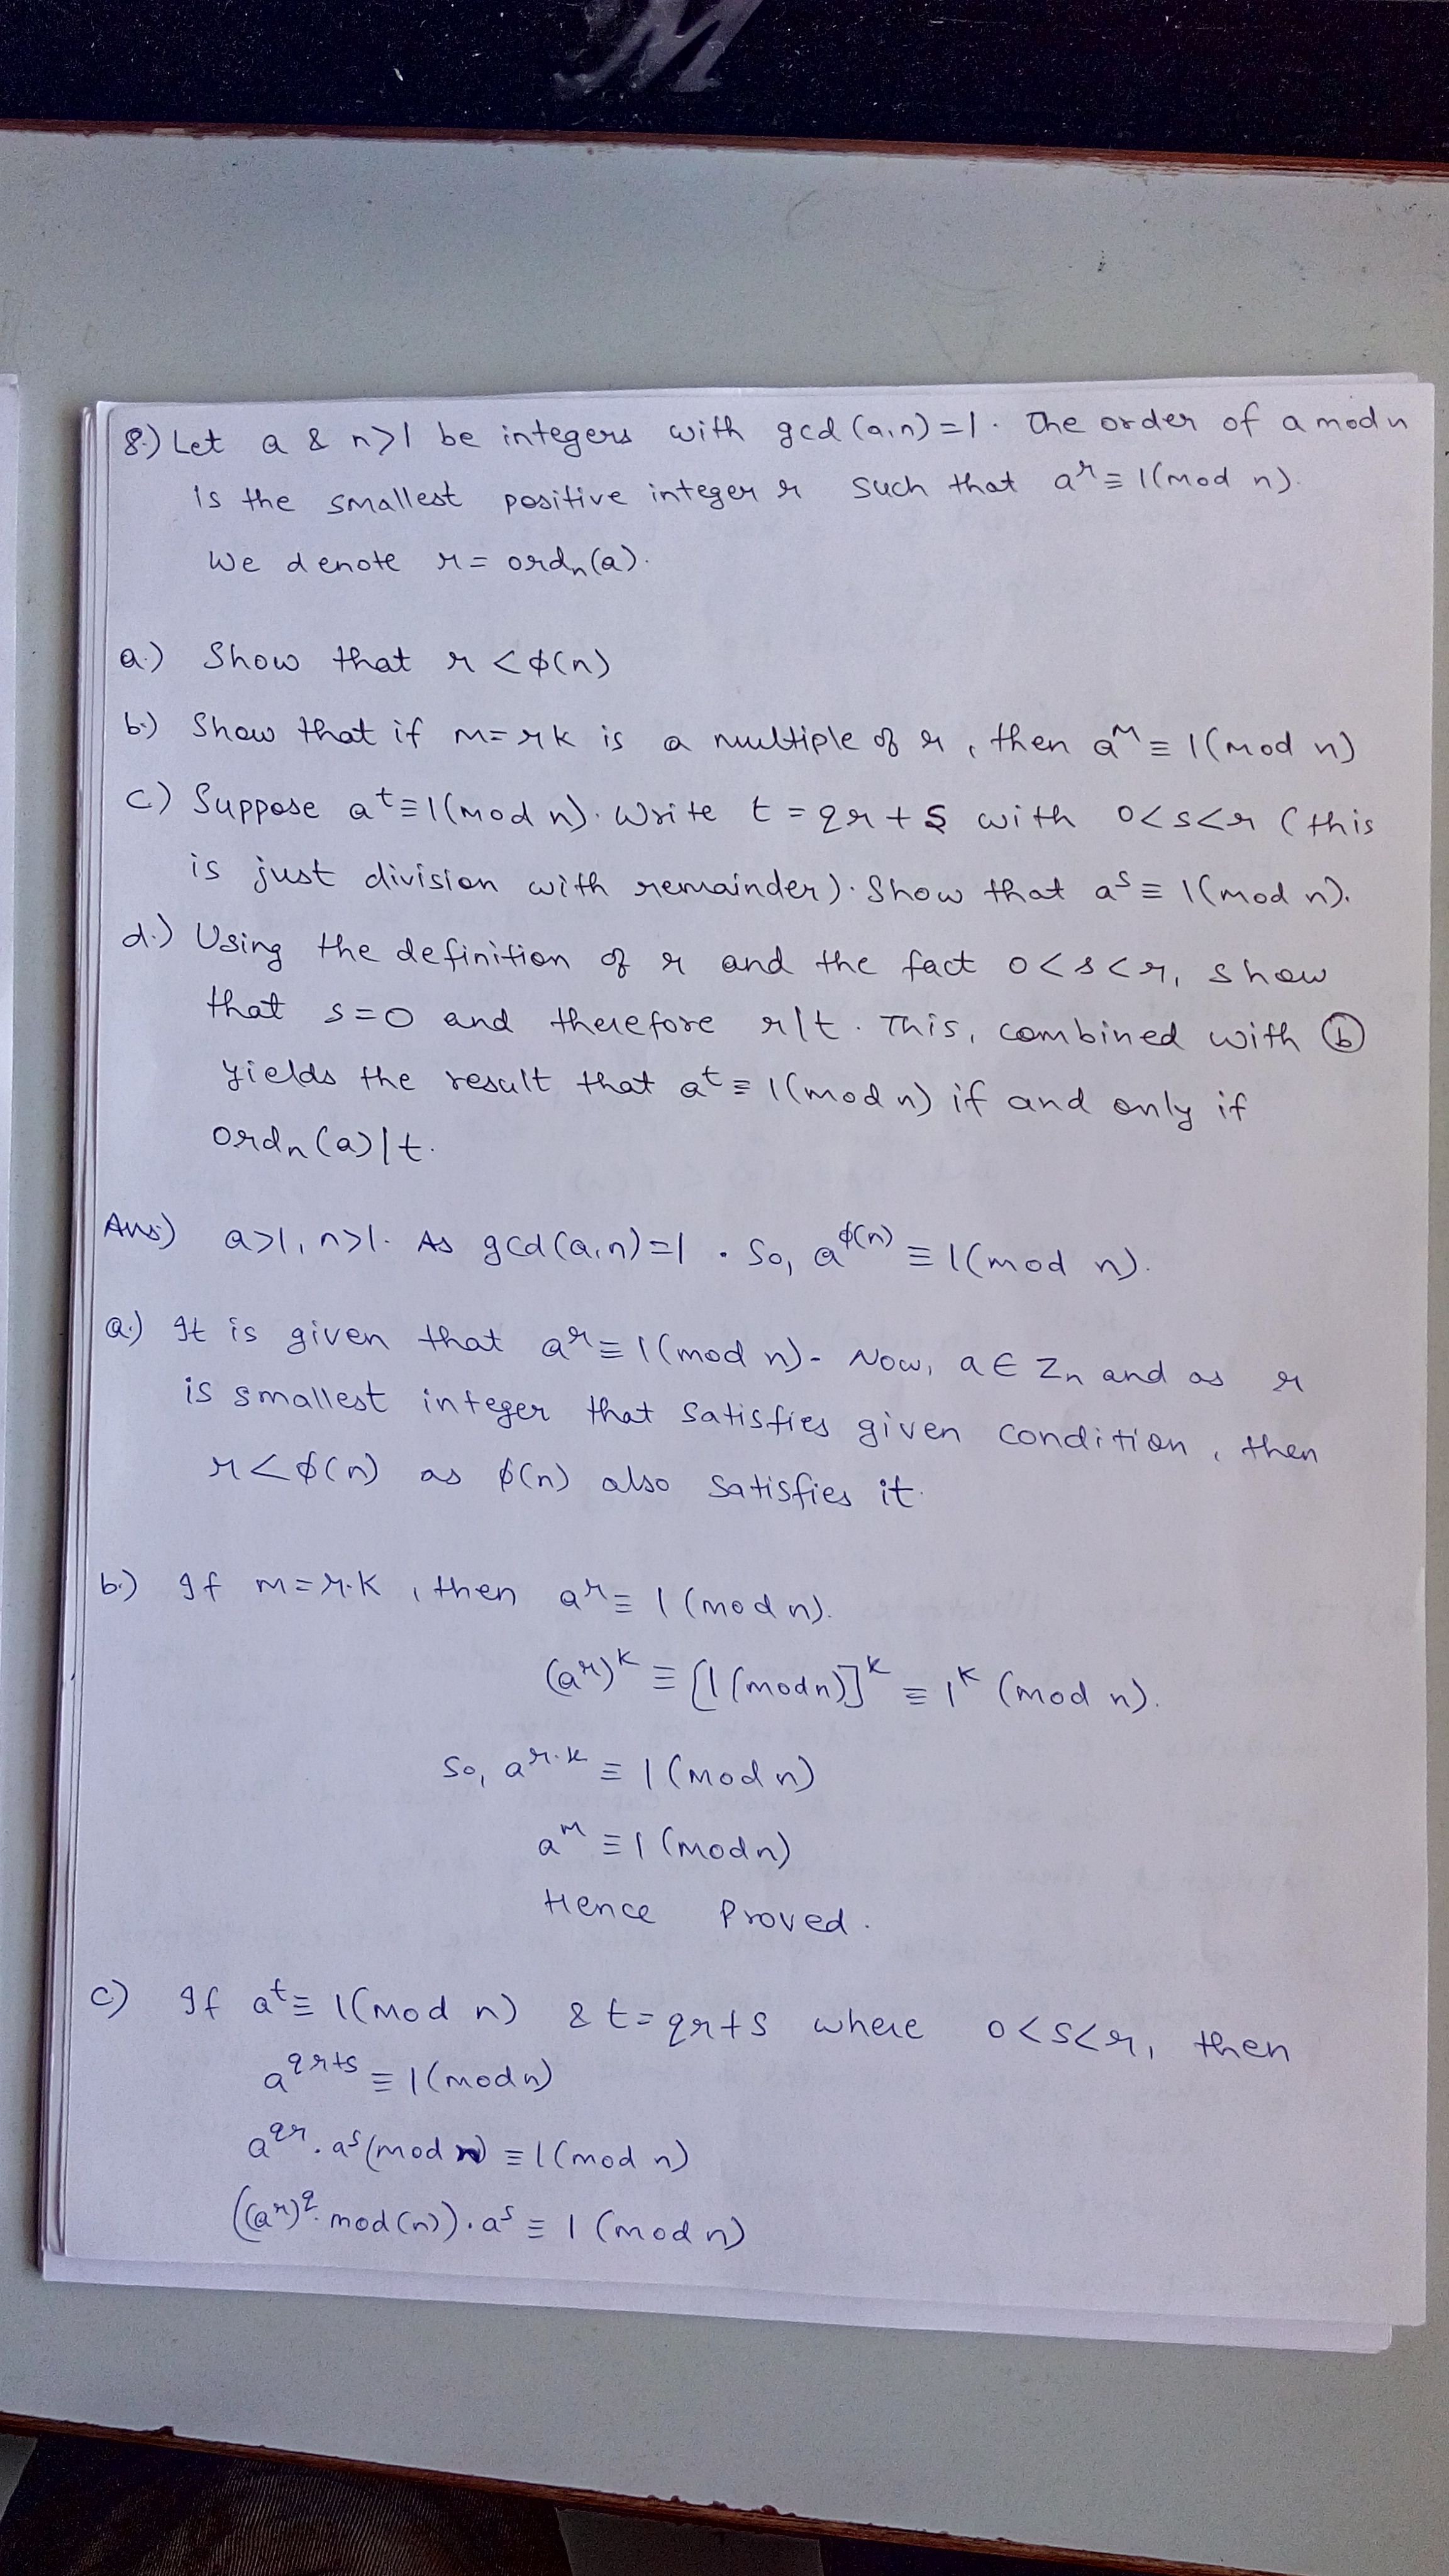 M
8.) Let a & n>1 be integers with gcd(a,n)=1. The order of a mod n
is the smallest positive integer r such that a^r ≡ 1(mod n).
We denote r = ord_n(a).
a.) Show that r < φ(n)
b.) Show that if m=rk is a multiple of r, then a^m ≡ 1(mod n)
c) Suppose a^t ≡ 1(mod n). Write t = qr + s with 0<s<r (this
is just division with remainder). Show that a^s ≡ 1(mod n).
d.) Using the definition of r and the fact 0<s<r, show
that s=0 and therefore r|t. This, combined with ⓑ
yields the result that a^t ≡ 1(mod n) if and only if
ord_n(a)|t.
Ans) a>1, n>1. As gcd(a,n)=1. So, a^φ(n) ≡ 1(mod n).
a.) It is given that a^r ≡ 1(mod n). Now, a ∈ Z_n and as r
is smallest integer that satisfies given condition, then
r < φ(n) as φ(n) also satisfies it.
b.) If m=r.k, then a^r ≡ 1(mod n).
(a^r)^k ≡ [1(mod n)]^k ≡ 1^k (mod n).
So, a^r.k ≡ 1(mod n)
a^m ≡ 1(mod n)
Hence Proved.
c) If a^t ≡ 1(mod n) & t = qr+s where 0<s<r, then
a^qr+s ≡ 1(mod n)
a^qr . a^s(mod n) ≡ 1(mod n)
((a^r)^q. mod(n)).a^s ≡ 1(mod n)